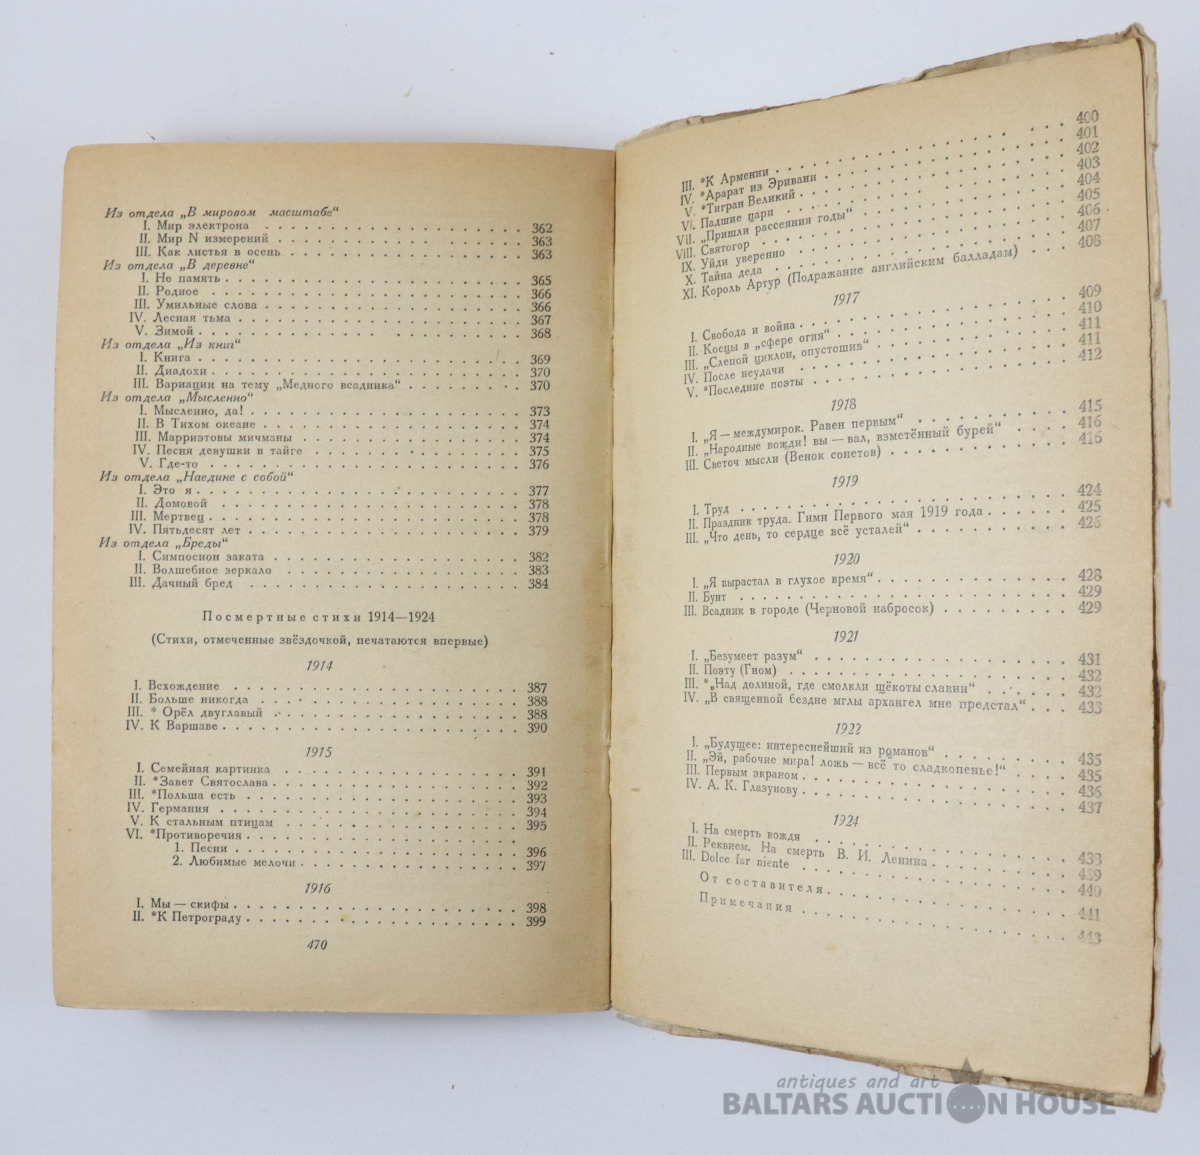 Из отдела „В мировом масштабе“
I. Мир электрона . . . . . . . . . . . . . . . . . . . . 362
II. Мир N измерений . . . . . . . . . . . . . . . . . . 363
III. Как листья в осень . . . . . . . . . . . . . . . . . . 363
Из отдела „В деревне“
I. Не память . . . . . . . . . . . . . . . . . . . . . . . 365
II. Родное . . . . . . . . . . . . . . . . . . . . . . . . 366
III. Умильные слова . . . . . . . . . . . . . . . . . . . . 366
IV. Лесная тьма . . . . . . . . . . . . . . . . . . . . . . 367
V. Зимой . . . . . . . . . . . . . . . . . . . . . . . . . 368
Из отдела „Из книг“
I. Книга . . . . . . . . . . . . . . . . . . . . . . . . . 369
II. Диадохи . . . . . . . . . . . . . . . . . . . . . . . . 370
III. Вариации на тему „Медного всадника“ . . . . . . . . . 370
Из отдела „Мысленно“
I. Мысленно, да! . . . . . . . . . . . . . . . . . . . . . 373
II. В Тихом океане . . . . . . . . . . . . . . . . . . . . 374
III. Марриэтовы мичманы . . . . . . . . . . . . . . . . . 374
IV. Песня девушки в тайге . . . . . . . . . . . . . . . . 375
V. Где-то . . . . . . . . . . . . . . . . . . . . . . . . 376
Из отдела „Наедине с собой“
I. Это я . . . . . . . . . . . . . . . . . . . . . . . . . 377
II. Домовой . . . . . . . . . . . . . . . . . . . . . . . 378
III. Мертвец . . . . . . . . . . . . . . . . . . . . . . . 378
IV. Пятьдесят лет . . . . . . . . . . . . . . . . . . . . . 379
Из отдела „Бреды“
I. Симпосион заката . . . . . . . . . . . . . . . . . . . 382
II. Волшебное зеркало . . . . . . . . . . . . . . . . . . 383
III. Дачный бред . . . . . . . . . . . . . . . . . . . . . 384
Посмертные стихи 1914—1924
(Стихи, отмеченные звёздочкой, печатаются впервые)
1914
I. Всхождение . . . . . . . . . . . . . . . . . . . . . . 387
II. Больше никогда . . . . . . . . . . . . . . . . . . . . 388
III. * Орёл двуглавый . . . . . . . . . . . . . . . . . . . 388
IV. К Варшаве . . . . . . . . . . . . . . . . . . . . . . . 390
1915
I. Семейная картинка . . . . . . . . . . . . . . . . . . 391
II. *Завет Святослава . . . . . . . . . . . . . . . . . . . 392
III. *Польша есть . . . . . . . . . . . . . . . . . . . . . 393
IV. Германия . . . . . . . . . . . . . . . . . . . . . . . 394
V. К стальным птицам . . . . . . . . . . . . . . . . . . 395
VI. *Противоречия . . . . . . . . . . . . . . . . . . . . .
1. Песни . . . . . . . . . . . . . . . . . . . . . . 396
2. Любимые мелочи . . . . . . . . . . . . . . . . . 397
1916
I. Мы — скифы . . . . . . . . . . . . . . . . . . . . . . 398
II. *К Петрограду . . . . . . . . . . . . . . . . . . . . . 399
470
III. *К Армении . . . . . . . . . . . . . . . . . . . . . 400
IV. *Арарат из Эривани . . . . . . . . . . . . . . . . . . 401
V. *Тигран Великий . . . . . . . . . . . . . . . . . . . 402
VI. Падшие цари . . . . . . . . . . . . . . . . . . . . . 403
VII. „Пришли рассеяния годы“ . . . . . . . . . . . . . . . 404
VIII. Святогор . . . . . . . . . . . . . . . . . . . . . . 405
IX. Уйди уверенно . . . . . . . . . . . . . . . . . . . . 406
X. Тайна деда . . . . . . . . . . . . . . . . . . . . . . 407
XI. Король Артур (Подражание английским балладам) . . . 408
1917
I. Свобода и война . . . . . . . . . . . . . . . . . . . . 409
II. Косцы в „сфере огня“ . . . . . . . . . . . . . . . . . 410
III. „Слепой циклон, опустошив“ . . . . . . . . . . . . . . 411
IV. После неудачи . . . . . . . . . . . . . . . . . . . . 411
V. *Последние поэты . . . . . . . . . . . . . . . . . . . 412
1918
I. „Я — междумирок. Равен первым“ . . . . . . . . . . . 415
II. „Народные вожди! вы — вал, взметённый бурей“ . . . . 416
III. Светоч мысли (Венок сонетов) . . . . . . . . . . . . . 416
1919
I. Труд . . . . . . . . . . . . . . . . . . . . . . . . . 424
II. Праздник труда. Гимн Первого мая 1919 года . . . . . . 425
III. „Что день, то сердце всё усталей“ . . . . . . . . . . . 426
1920
I. „Я вырастал в глухое время“ . . . . . . . . . . . . . . 428
II. Бунт . . . . . . . . . . . . . . . . . . . . . . . . . 429
III. Всадник в городе (Черновой набросок) . . . . . . . . . 429
1921
I. „Безумеет разум“ . . . . . . . . . . . . . . . . . . . 431
II. Поэту (Гном) . . . . . . . . . . . . . . . . . . . . . 432
III. *„Над долиной, где смолкли щёкоты славии“ . . . . . . 432
IV. „В священной бездне мглы архангел мне предстал“ . . . 433
1922
I. „Будущее: интереснейший из романов“ . . . . . . . . . . 435
II. „Эй, рабочие мира! ложь — всё то сладкопенье!“ . . . . 435
III. Первым экраном . . . . . . . . . . . . . . . . . . . . 436
IV. А. К. Глазунову . . . . . . . . . . . . . . . . . . . . 437
1924
I. На смерть вождя . . . . . . . . . . . . . . . . . . . . 438
II. Реквием. На смерть В. И. Ленина . . . . . . . . . . . . 439
III. Dolce far niente . . . . . . . . . . . . . . . . . . . . 440
От составителя . . . . . . . . . . . . . . . . . . . . . 441
Примечания . . . . . . . . . . . . . . . . . . . . . . . 443
antiques and art
BALTARS AUCTION HOUSE